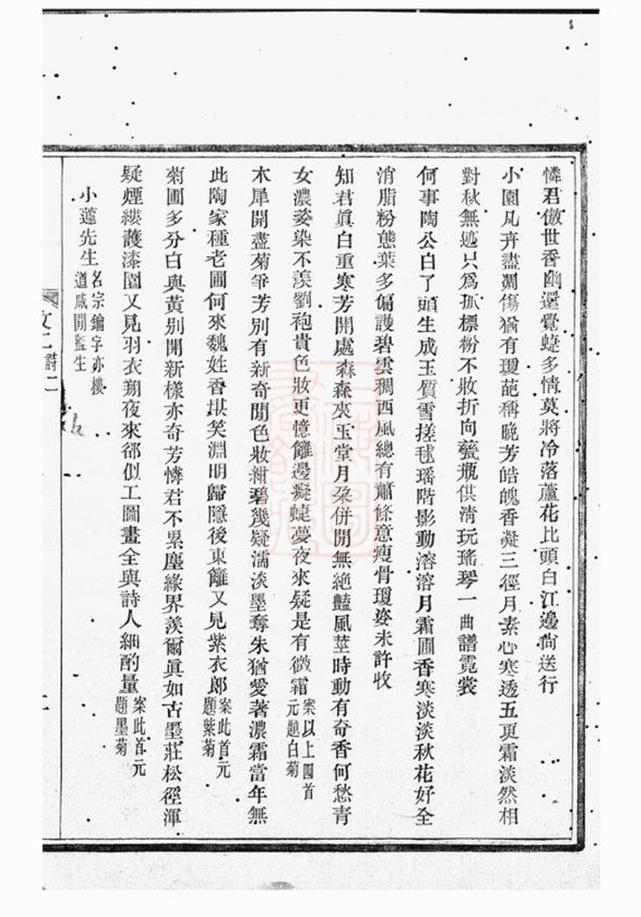 憐君傲世香幽還覺蜨多情莫將冷落蘆花比頭白江邊尙送行
小園凡卉盡凋傷猶有瓊葩稱晚芳皓魄香凝三徑月素心寒透五更霜淡然相
對秋無迹只爲孤標粉不妝折向甆瓶供清玩瑤琴一曲譜霓裳
何事陶公白了頭生成玉質雪搓毬璠階影動溶溶月霜圃香寒淡淡秋花好全
消脂粉態葉多偏護碧雲稠西風總有蕭條意瘦骨瓊姿未許收
知君眞白重寒芳開處森森夾玉堂月朶併開無絕豔風莖時動有奇香何愁青
女濃姿染不羨劉袍貴色妝更憶籬邊癡蜨夢夜來疑是有微霜案以上四首元題白菊
木犀開盡菊爭芳別有新奇閒色妝紺碧幾疑濡淡墨奪朱猶愛著濃霜當年無
此陶家種老圃何來魏姓香堪笑淵明歸隱後東籬又見紫衣郎案此首元題紫菊
菊圃多分白與黃別開新樣亦奇芳憐君不累塵緣界羨爾眞如古墨莊松徑渾
疑煙縷護漆園又見羽衣翔夜來郤似工圖畫全與詩人細酌量案此首元題墨菊
小蘧先生名宗鑰字亦樓道咸閒監生
文二 詩二